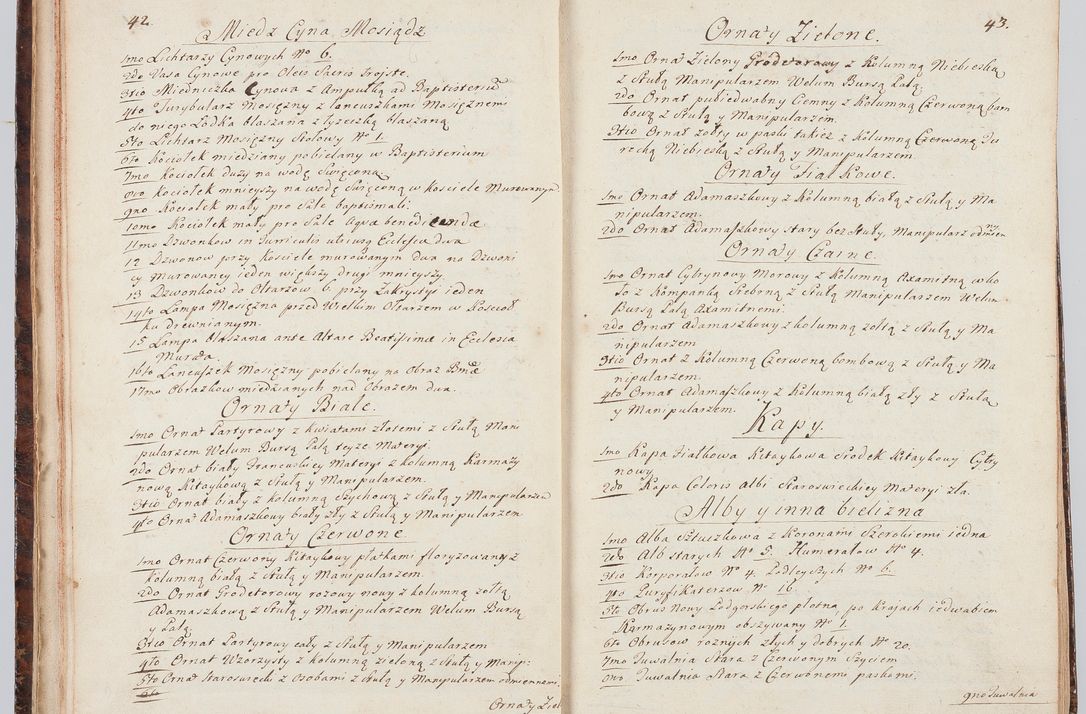 42.
Miedz Cyna Mosiądz
1mo Lichtarzy Cynowych No 6.
2do Vasa Cynowe pro Oleis Sacris troiste.
3tio Miedniczka Cynowa z Ampułką ad Baptisterium
4to Turybularz Mosiężny z łancuszkami Mosiężnemi
do niego Łodka blaszana z łyzeczką blaszaną
5to Lichtarz Mosiężny Stołowy No 1.
6to Kociołek miedziany pobielany w Baptisterium
7mo Kociołek duży na wodę Swięconą
8vo Kociołek mnieyszy na wodę Swięconą w kosciele Murowanym
9no Kociołek mały pro Sale baptismali:
10mo Kociołek mały pro Sale Aqua benedicenda
11mo Dzwonkow in Turriculis utriusq Ecclesia dwa
12 Dzwonow przy kosciele murowanym dwa na Dzwoni
cy Murowaney ieden większy drugi mnieyszy
13 Dzwonkow do Ołtarzow 6. przy Zakrystyi ieden
14to Lampa Mosiężna przed Wielkim Ołtarzem w Koscioł
ku drewnianym.
15 Lampa Blaszana ante Altare Beatissima in Ecclesia
Murata.
16to Lancuszek Mosiężny pobielany na Obraz
17mo Obrazkow miedzianych nad Obrazem dwa.
Ornaty Białe.
1mo Ornat Partyrowy z kwiatami złotemi z Stułą Mani
pularzem Welum Bursą Palą teyze Materyi.
2do Ornat biały Francuskiey Materyi z kolumną Karmazy
nową Kitaykową z Stułą y Manipularzem.
3tio Ornat biały z kolumną Szychową z Stułą y Manipularzem
4to Ornat Adamaszkowy biały zły z Stułą y Manipularzem
Ornaty Czerwone.
1mo Ornat Czerwony Kitaykowy płatkami floryzowany z
kolumną białą z Stułą y Manipularzem.
2do Ornat Grodetorowy rozowy nowy z kolumną zołtą
Adamaszkową z Stułą y Manipularzem Welum Bursą
y Palą
3tio Ornat Partyrowy cały z Stułą y Manipularzem
4to Ornat Wzorzysty z kolumną zieloną z Stułą y Manip:
5to Ornat Starosuiecki z Osobami z Stułą y Manipularzem odmiennemi.
6to
Ornaty Ziel
43.
Ornaty Zielone.
1mo Ornat Zielony Grodetorowy z Kolumną Niebieską
z Stułą Manipularzem Welum Bursą Palą.
2do Ornat pułiedwabny Ciemny z Kolumną Czerwoną bam
bową z Stułą y Manipularzem.
3tio Ornat zołty w paski takież z Kolumną Czerwoną Tu
recką Niebieską z Stułą y Manipularzem
Ornaty Fiałkowe.
1mo Ornat Adamaszkowy z Kolumną białą z Stułą y Ma
nipularzem.
2do Ornat Adamaszkowy stary bez Stuły, Manipularz odmien
ny
Ornaty Czarne.
1mo Ornat Cytrynowy Morowy z Kolumną Axamitną wko
ło z Kompanką Srebrną z Stułą Manipularzem Welum
Bursą Palą Axamitnemi.
2do Ornat Adamaszkowy z kolumną zołtą z Stułą y Ma
nipularzem
3tio Ornat z Kolumną Czerwoną bombową z Stułą y Ma
nipularzem.
4to Ornat Adamaszkowy z Kolumną białą zły z Stułą
y Manipularzem.
Kapy.
1mo Kapa Fiałkowa Kitaykowa Srodek Kitaykowy Cytry
nowy
2do Kapa Coloris Albi Staroswieckiey Materyi zła.
Alby y inna bielizna
1mo Alba Sztuszkowa z Koronami Szerokiemi iedna
2do Alb starych No 5. Humerałow No 4.
3tio Korporałow No 4. Podleyszych No 6.
4to Puryfikaterzow No 16.
5to Obrus Nowy Podgorskiego płotna, po Krajach iedwabiem
Karmazynowym obszywany No 1.
6to Obrusow roznych złych y dobrych No 20.
7mo Tuwalnia Stara z Czerwonym Szyciem
8vo Tuwalnia Stara z Czerwonemi paskami.
9no Tuwalnia